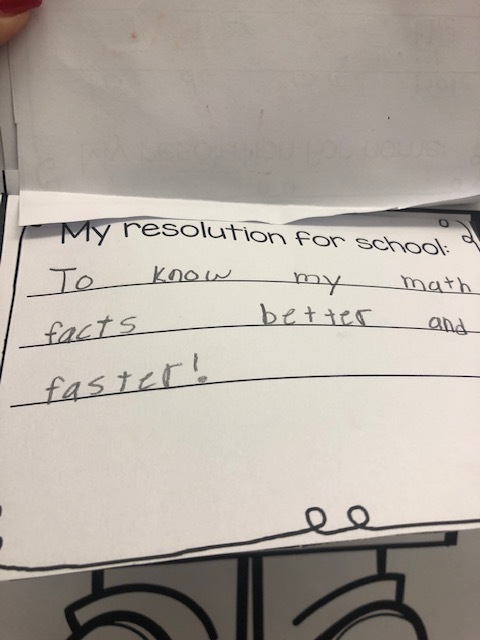 My resolution for school:
To know my math
facts better and
faster!